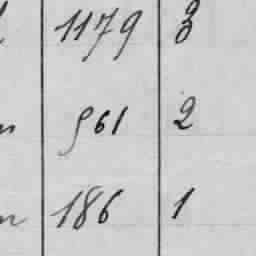 1179 3
961 2
186 1